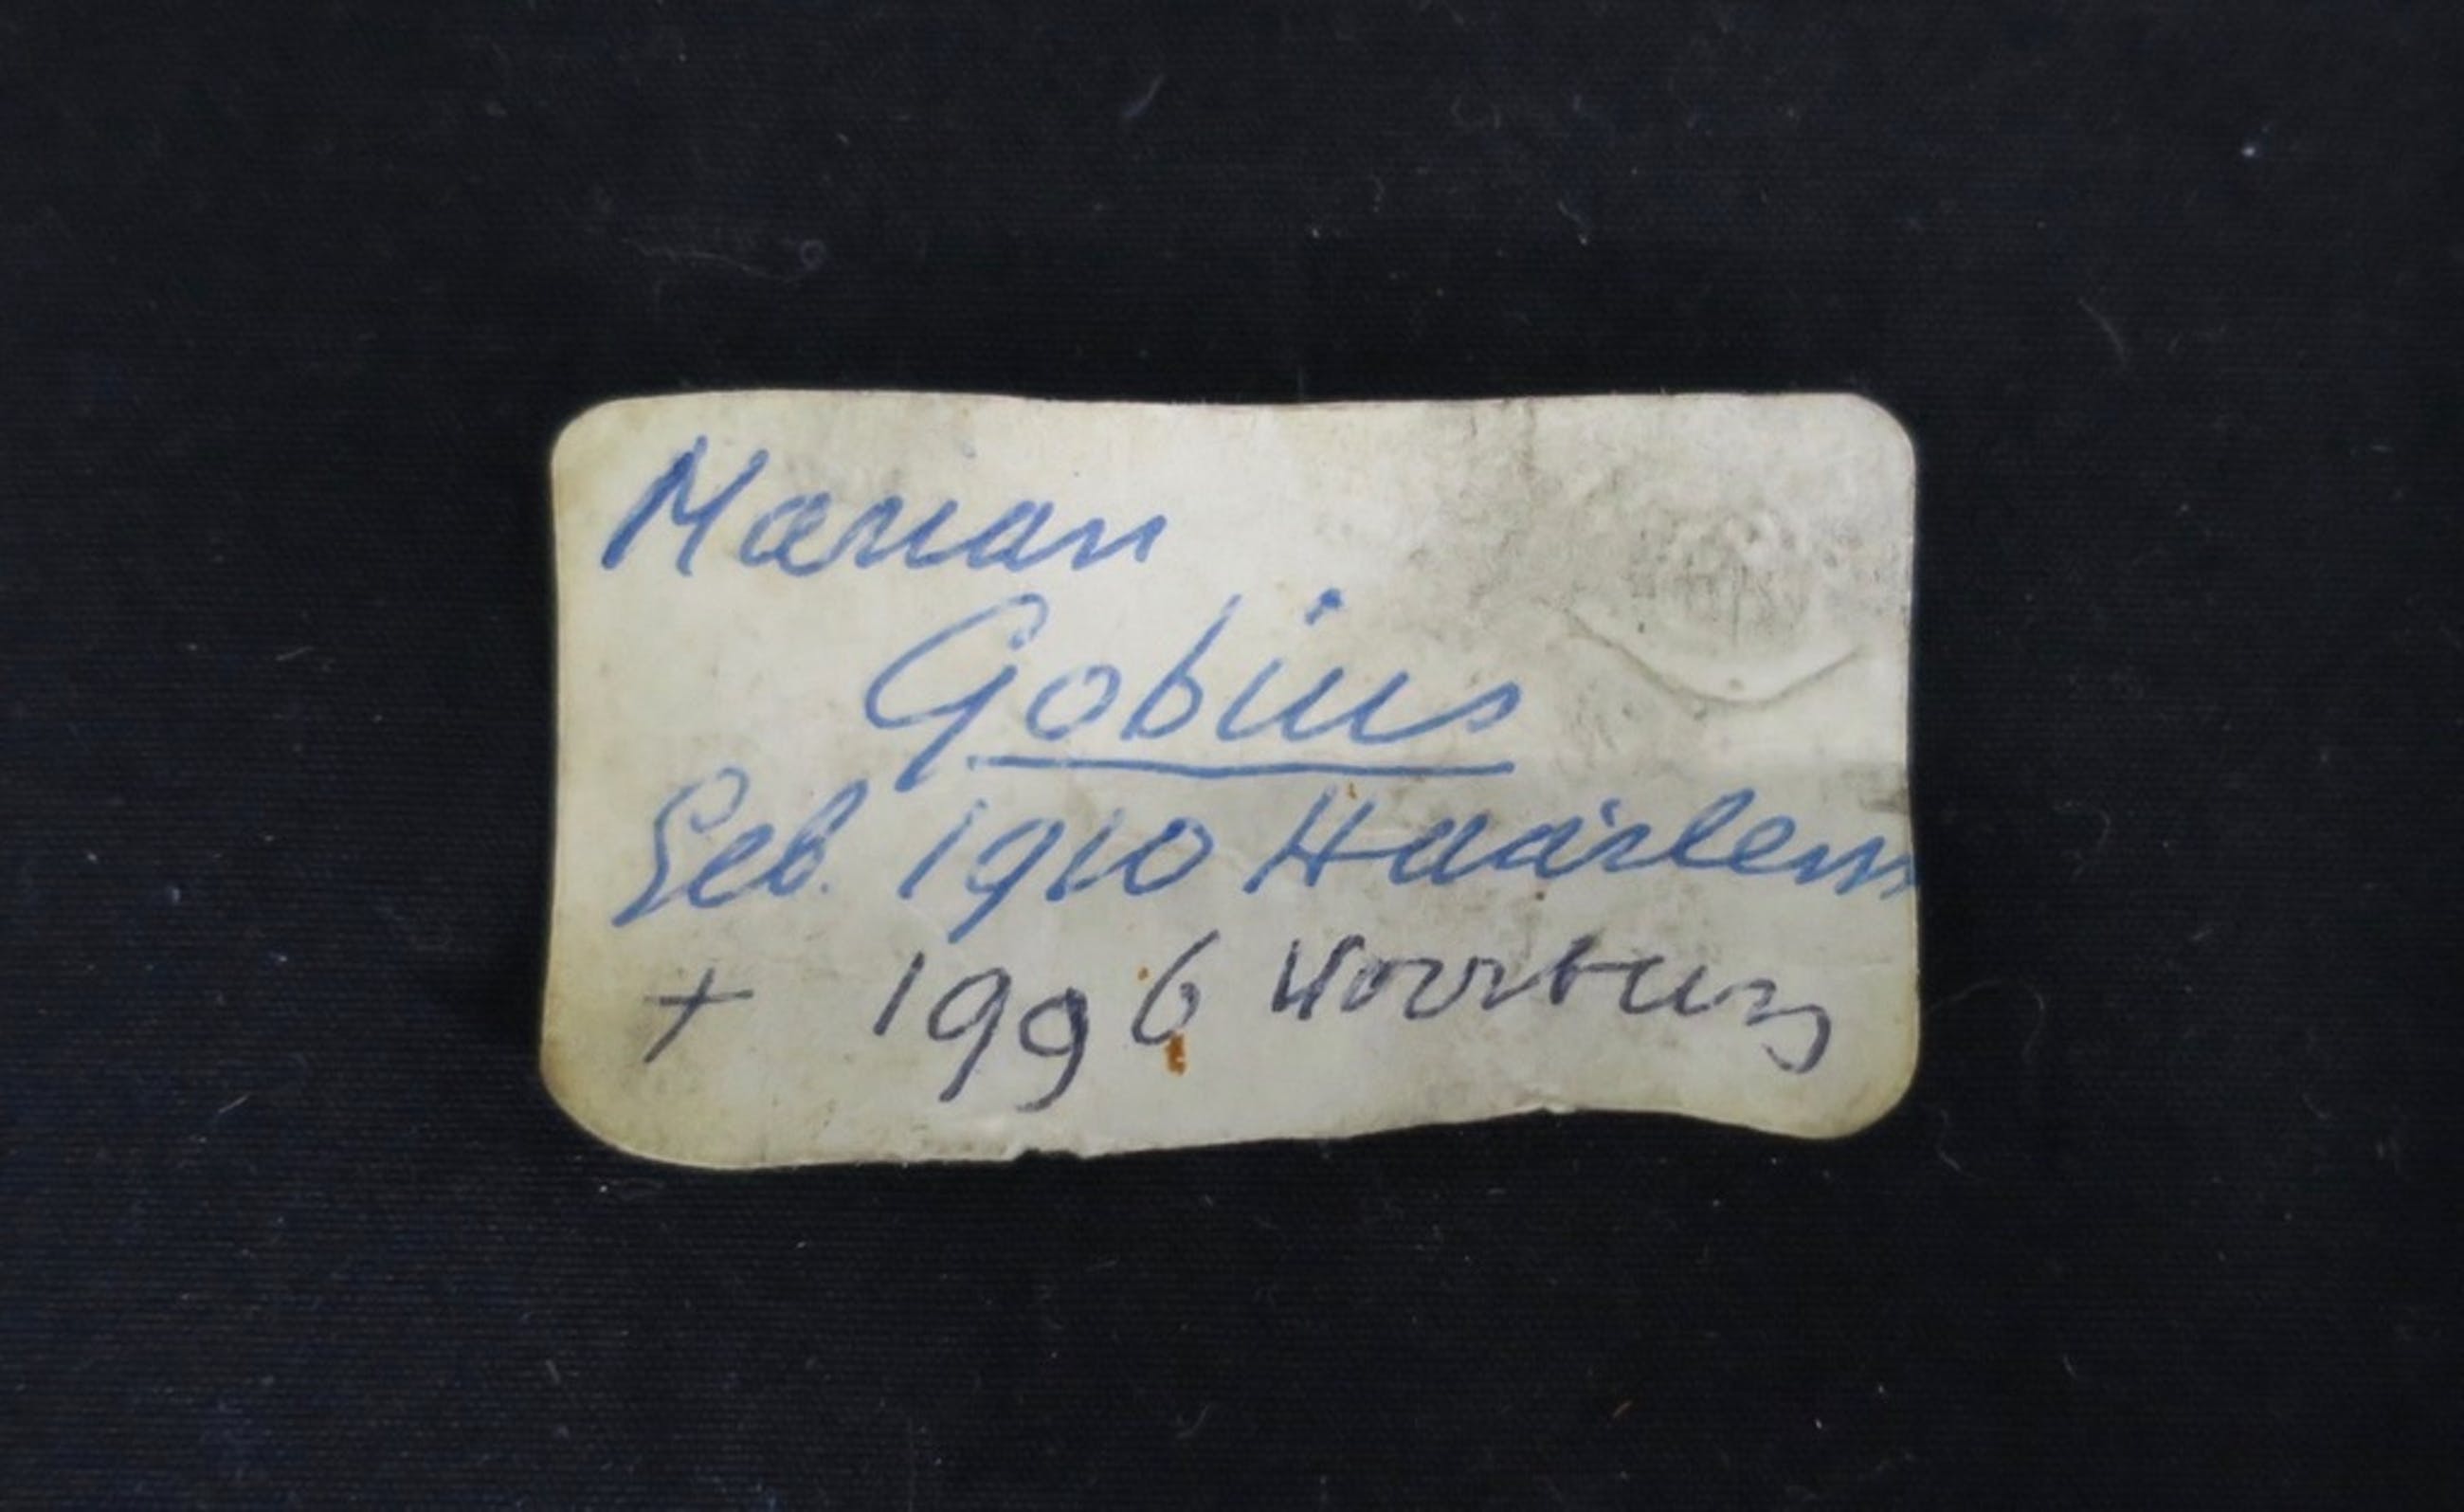 Marian
Gobius
Geb. 1910 Haarlem
+ 1996 Voorburg